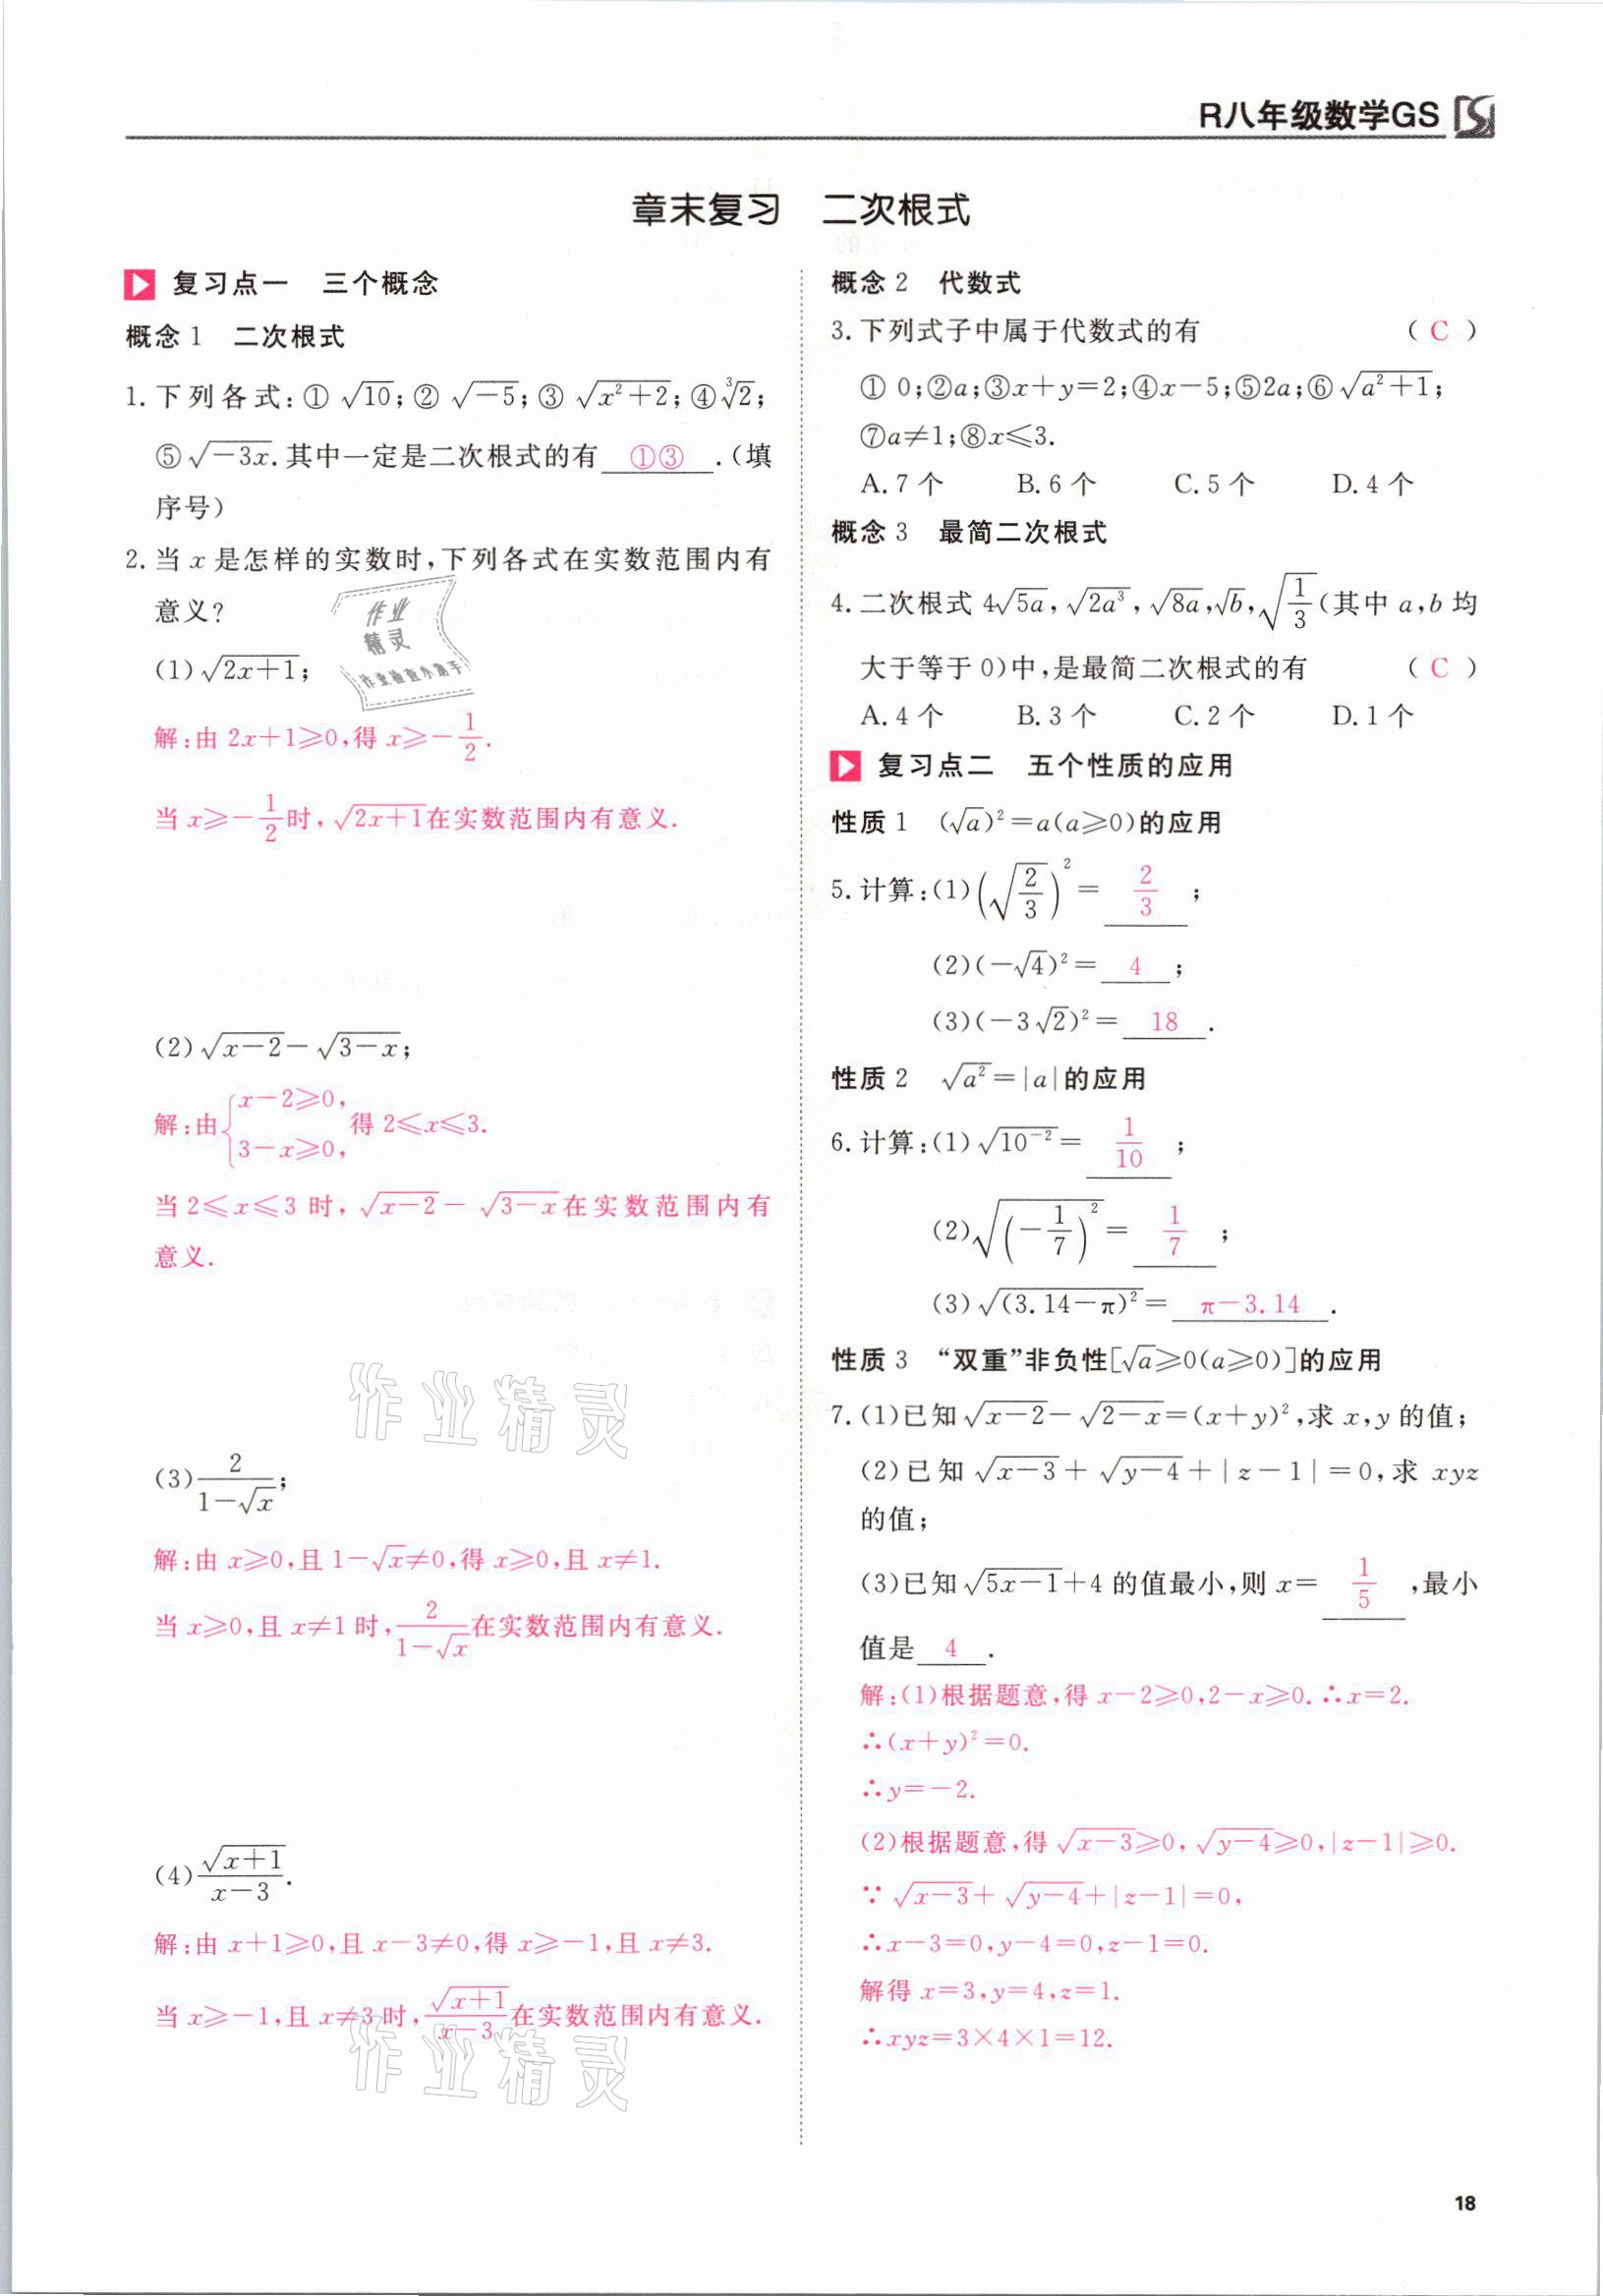 R八年级数学GS
章末复习　二次根式
复习点一　三个概念
概念 1　二次根式
1. 下列各式:① √10; ② √-5; ③ √x²+2; ④ ∛2;
⑤ √-3x. 其中一定是二次根式的有 ①③ .(填
序号)
2. 当 x 是怎样的实数时,下列各式在实数范围内有
意义?
(1) √2x+1;
解:由 2x+1≥0,得 x≥-1/2.
当 x≥-1/2时, √2x+1在实数范围内有意义.
(2) √x-2- √3-x;
解:由{x-2≥0, 3-x≥0, 得 2≤x≤3.
当 2≤x≤3 时, √x-2- √3-x在实数范围内有
意义.
(3) 2/(1-√x);
解:由 x≥0,且 1-√x≠0,得 x≥0,且 x≠1.
当 x≥0,且 x≠1 时, 2/(1-√x)在实数范围内有意义.
(4) √x+1/(x-3).
解:由 x+1≥0,且 x-3≠0,得 x≥-1,且 x≠3.
当 x≥-1,且 x≠3 时, √x+1/(x-3)在实数范围内有意义.
概念 2　代数式
3. 下列式子中属于代数式的有 ( C )
① 0;②a;③x+y=2;④x-5;⑤2a;⑥ √a²+1;
⑦a≠1;⑧x≤3.
A. 7 个 B. 6 个 C. 5 个 D. 4 个
概念 3　最简二次根式
4. 二次根式 4√5a, √2a³, √8a, √b, √1/3(其中 a,b 均
大于等于 0)中,是最简二次根式的有 ( C )
A. 4 个 B. 3 个 C. 2 个 D. 1 个
复习点二　五个性质的应用
性质 1　(√a)²=a(a≥0)的应用
5. 计算:(1)(√2/3)²= 2/3 ;
(2)(-√4)²= 4 ;
(3)(-3√2)²= 18 .
性质 2　√a²=|a|的应用
6. 计算:(1) √10⁻²= 1/10 ;
(2) √(-1/7)²= 1/7 ;
(3) √(3.14-π)²= π-3.14 .
性质 3　“双重”非负性[√a≥0(a≥0)]的应用
7. (1)已知 √x-2- √2-x=(x+y)²,求 x,y 的值;
(2)已知 √x-3+ √y-4+|z-1|=0,求 xyz
的值;
(3)已知 √5x-1+4 的值最小,则 x= 1/5 ,最小
值是 4 .
解:(1)根据题意,得 x-2≥0,2-x≥0. ∴x=2.
∴(x+y)²=0.
∴y=-2.
(2)根据题意,得 √x-3≥0, √y-4≥0,|z-1|≥0.
∵ √x-3+ √y-4+|z-1|=0,
∴x-3=0,y-4=0,z-1=0.
解得 x=3,y=4,z=1.
∴xyz=3×4×1=12.
作业
精灵
作业检查小助手
作业精灵
作业精灵
18